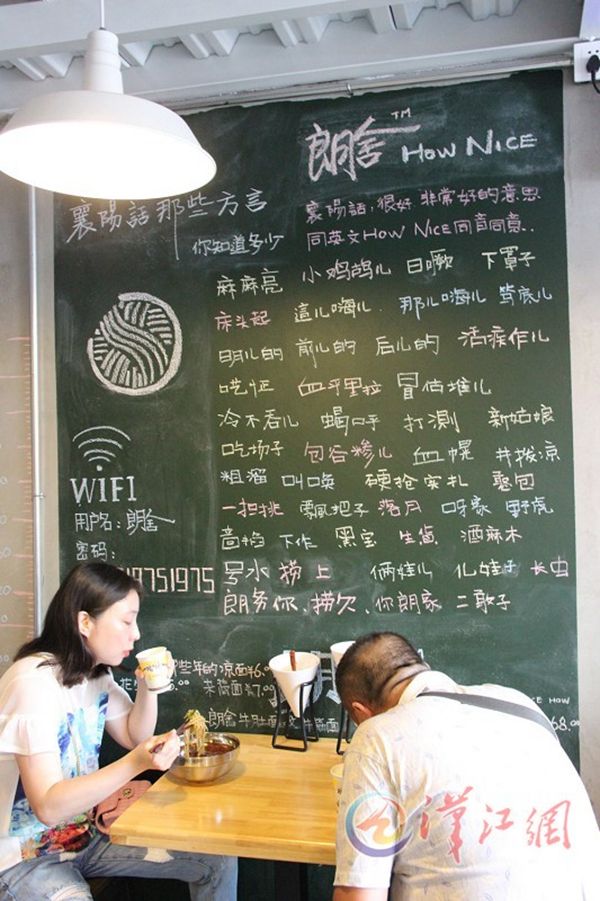 朗舍™ HOW NICE
襄陽話那些方言
你知道多少
襄陽話,很好 非常好的意思
同英文HOW NICE同音同意..
麻麻亮 小鸡鸪儿 日噘 下罩子
床头起 這儿嗨儿 那儿嗨儿 笃底儿
明儿的 前儿的 后儿的 活瘊作儿
吃怔 血乎里拉 冒估堆儿
冷不吞儿 蝎口乎 打測 新姑娘
吃扬子 包谷糁儿 血幌 井拔凉
粗溜 叫唤 硬抢实扎 憨包
一扣挑 飘把子 落月 呀家 野虎
下作 黑宝 生鹵 洒麻木
号水 捞上 俩娃儿 儿娃子 长虫
朗务你、捞欠、你朗家 二敢子
WIFI
用户名:朗舍
密码:
19751975
那些年的凉面¥6.
朱荷面¥7.00
朗舍牛肚面
HOW
68.
漢江網